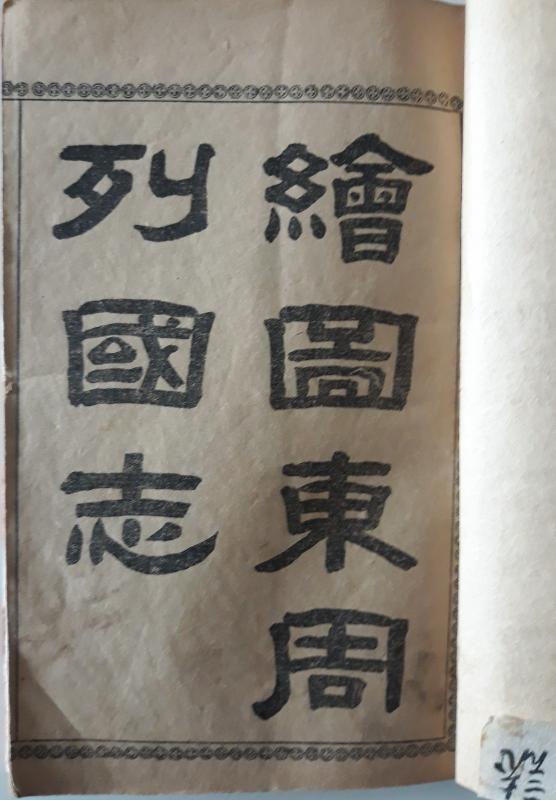 繪圖東周
列國志